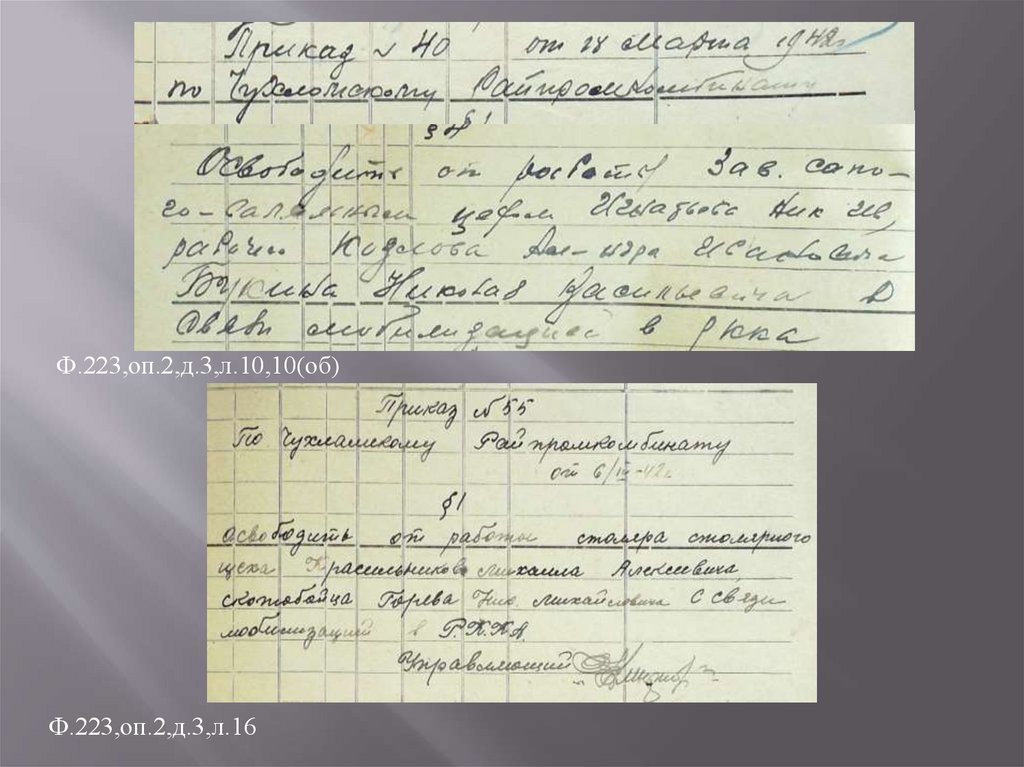 Приказ № 40 от 28 Марта 1942г
по Чухломскому Райпромкомбинату
§ 1
Освободить от работы Зав. сапо-
го-валяльным цехом Игнатьева Ник Ив,
рабочего Козлова Ал-ндра
Букина Николая Васильевича в
связи мобилизацией в ркка
Ф.223,оп.2,д.3,л.10,10(об)
Приказ № 55
По Чухламскому Райпромкомбинату
от 6/ -42г.
§1
освободить от работы столяра столярного
цеха Красильникова Михаила Алексеевича,
скотобойца Горева Ник. Михайловича с связи
мобилизацией в Р.К.К.А.
Управляющий
Ф.223,оп.2,д.3,л.16